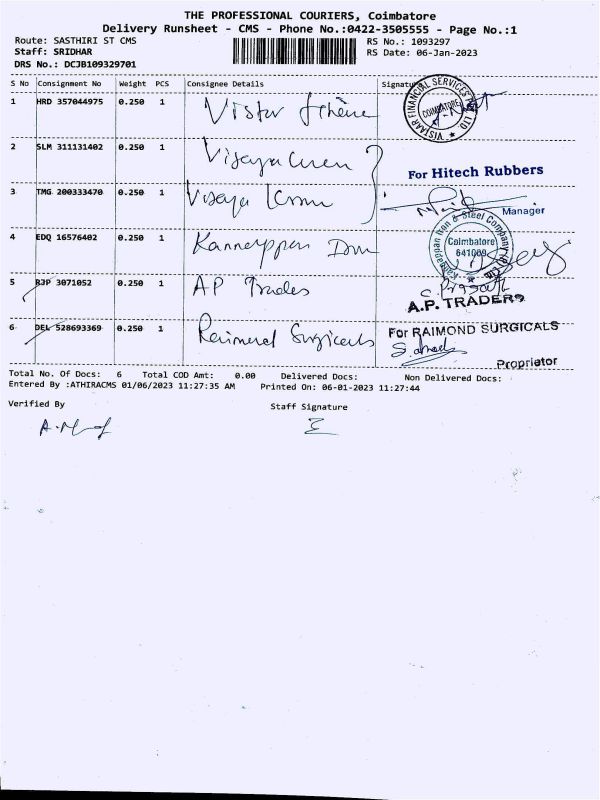 THE PROFESSIONAL COURIERS, Coimbatore
Delivery Runsheet - CMS - Phone No.:0422-3505555 - Page No.:1
Route: SASTHIRI ST CMS
RS No.: 1093297
Staff: SRIDHAR
RS Date: 06-Jan-2023
DRS No.: DCJB109329701
S No Consignment No Weight PCS Consignee Details Signature
VISTAAR FINANCIAL SERVICES PVT LTD
COIMBATORE
1 HRD 357044975 0.250 1 Vistar
2 SLM 311131402 0.250 1
For Hitech Rubbers
3 TMG 200333470 0.250 1 Vijaya
Manager
Kannappan Iron & Steel Company
Coimbatore
641009
4 EDQ 16576402 0.250 1 Kannappan
5 RJP 3071052 0.250 1 AP Trades
A.P. TRADERS
6 DEL 528693369 0.250 1 Raimond Surgicals
For RAIMOND SURGICALS
Proprietor
Total No. Of Docs: 6 Total COD Amt: 0.00 Delivered Docs: Non Delivered Docs:
Entered By :ATHIRACMS 01/06/2023 11:27:35 AM Printed On: 06-01-2023 11:27:44
Verified By
Staff Signature